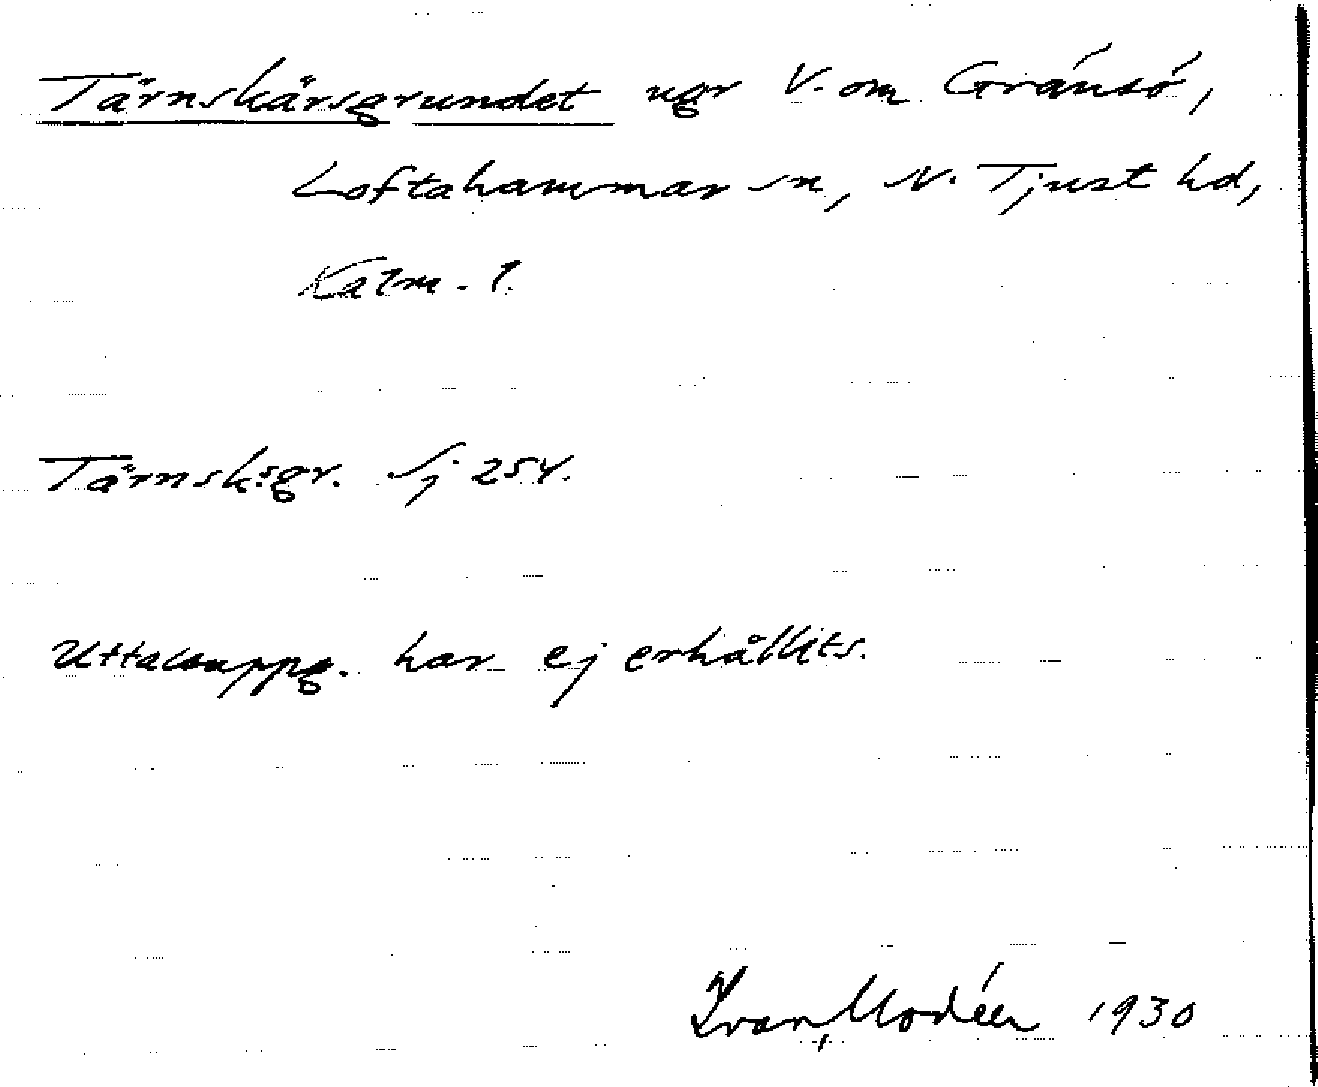 Tärnskärsgrundet ugr V. om Gränsö,
Loftahammar sn, N. Tjust hd,
Kalm. l.
Tärnsk:sgr. Sj 254.
Uttalsuppg. har ej erhållits.
Ivar Modéer 1930